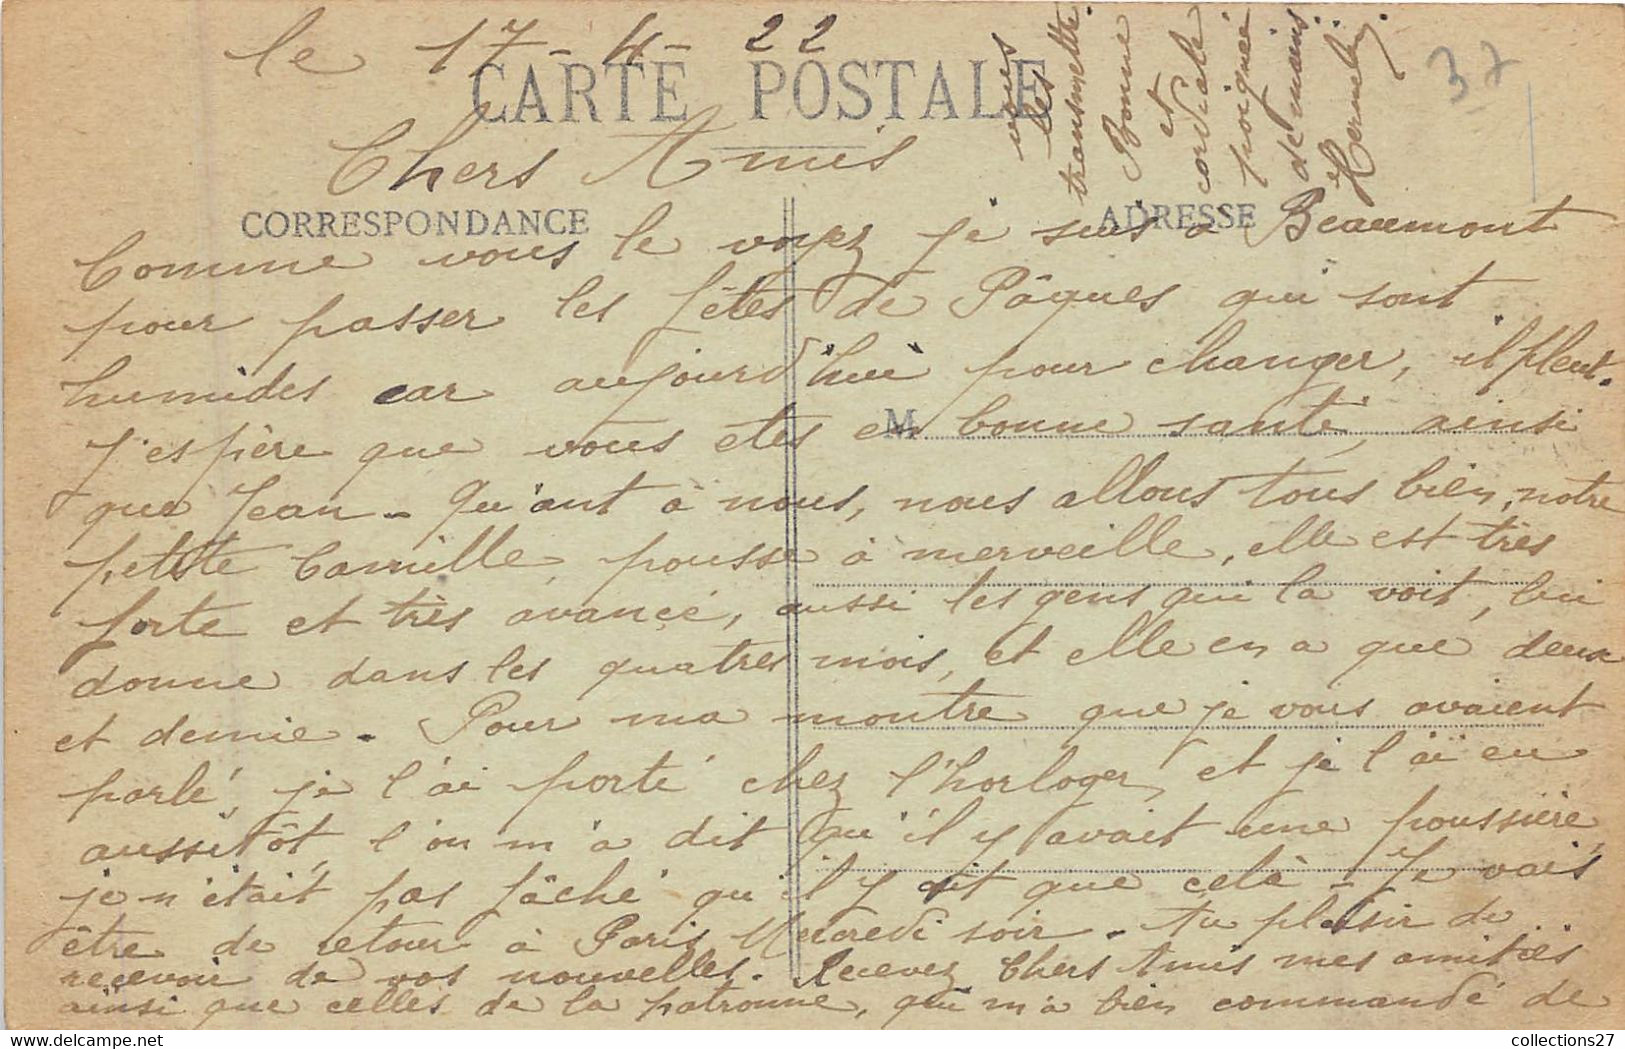 le 17-4-22
CARTE POSTALE
Chers Amis
CORRESPONDANCE
ADRESSE
Comme vous le voyez je suis a Beaumont
pour passer les fêtes de Pâques qui sont
humides car aujourd'hui pour changer, il pleut.
J'espère que vous etes en bonne santé, ainsi
M
que Jean - Qu'ant à nous, nous allons tous bien, notre
petite Camille, pousse à merveille, elle est très
forte et très avancé, aussi les gens qui la voit, lui
donne dans les quatres mois, et elle en a que deux
et demie. Pour ma montre que je vous avaient
parlé, je l'ai porté chez l'horloger, et je l'ai eu
aussitôt, l'on m'a dit qu'il y avait une poussière,
je n'était pas fâché qu'il y ait que celà - Je vais
être de retour à Paris Mercredi soir. Au plaisir de
recevoir de vos nouvelles. Recevez Chers Amis mes amitiés
ainsi que celles de la patronne, qui m'a bien commandé de
vous
les
transmettre.
Bonne
et
cordiale
poignée
de mains.
37
collections27